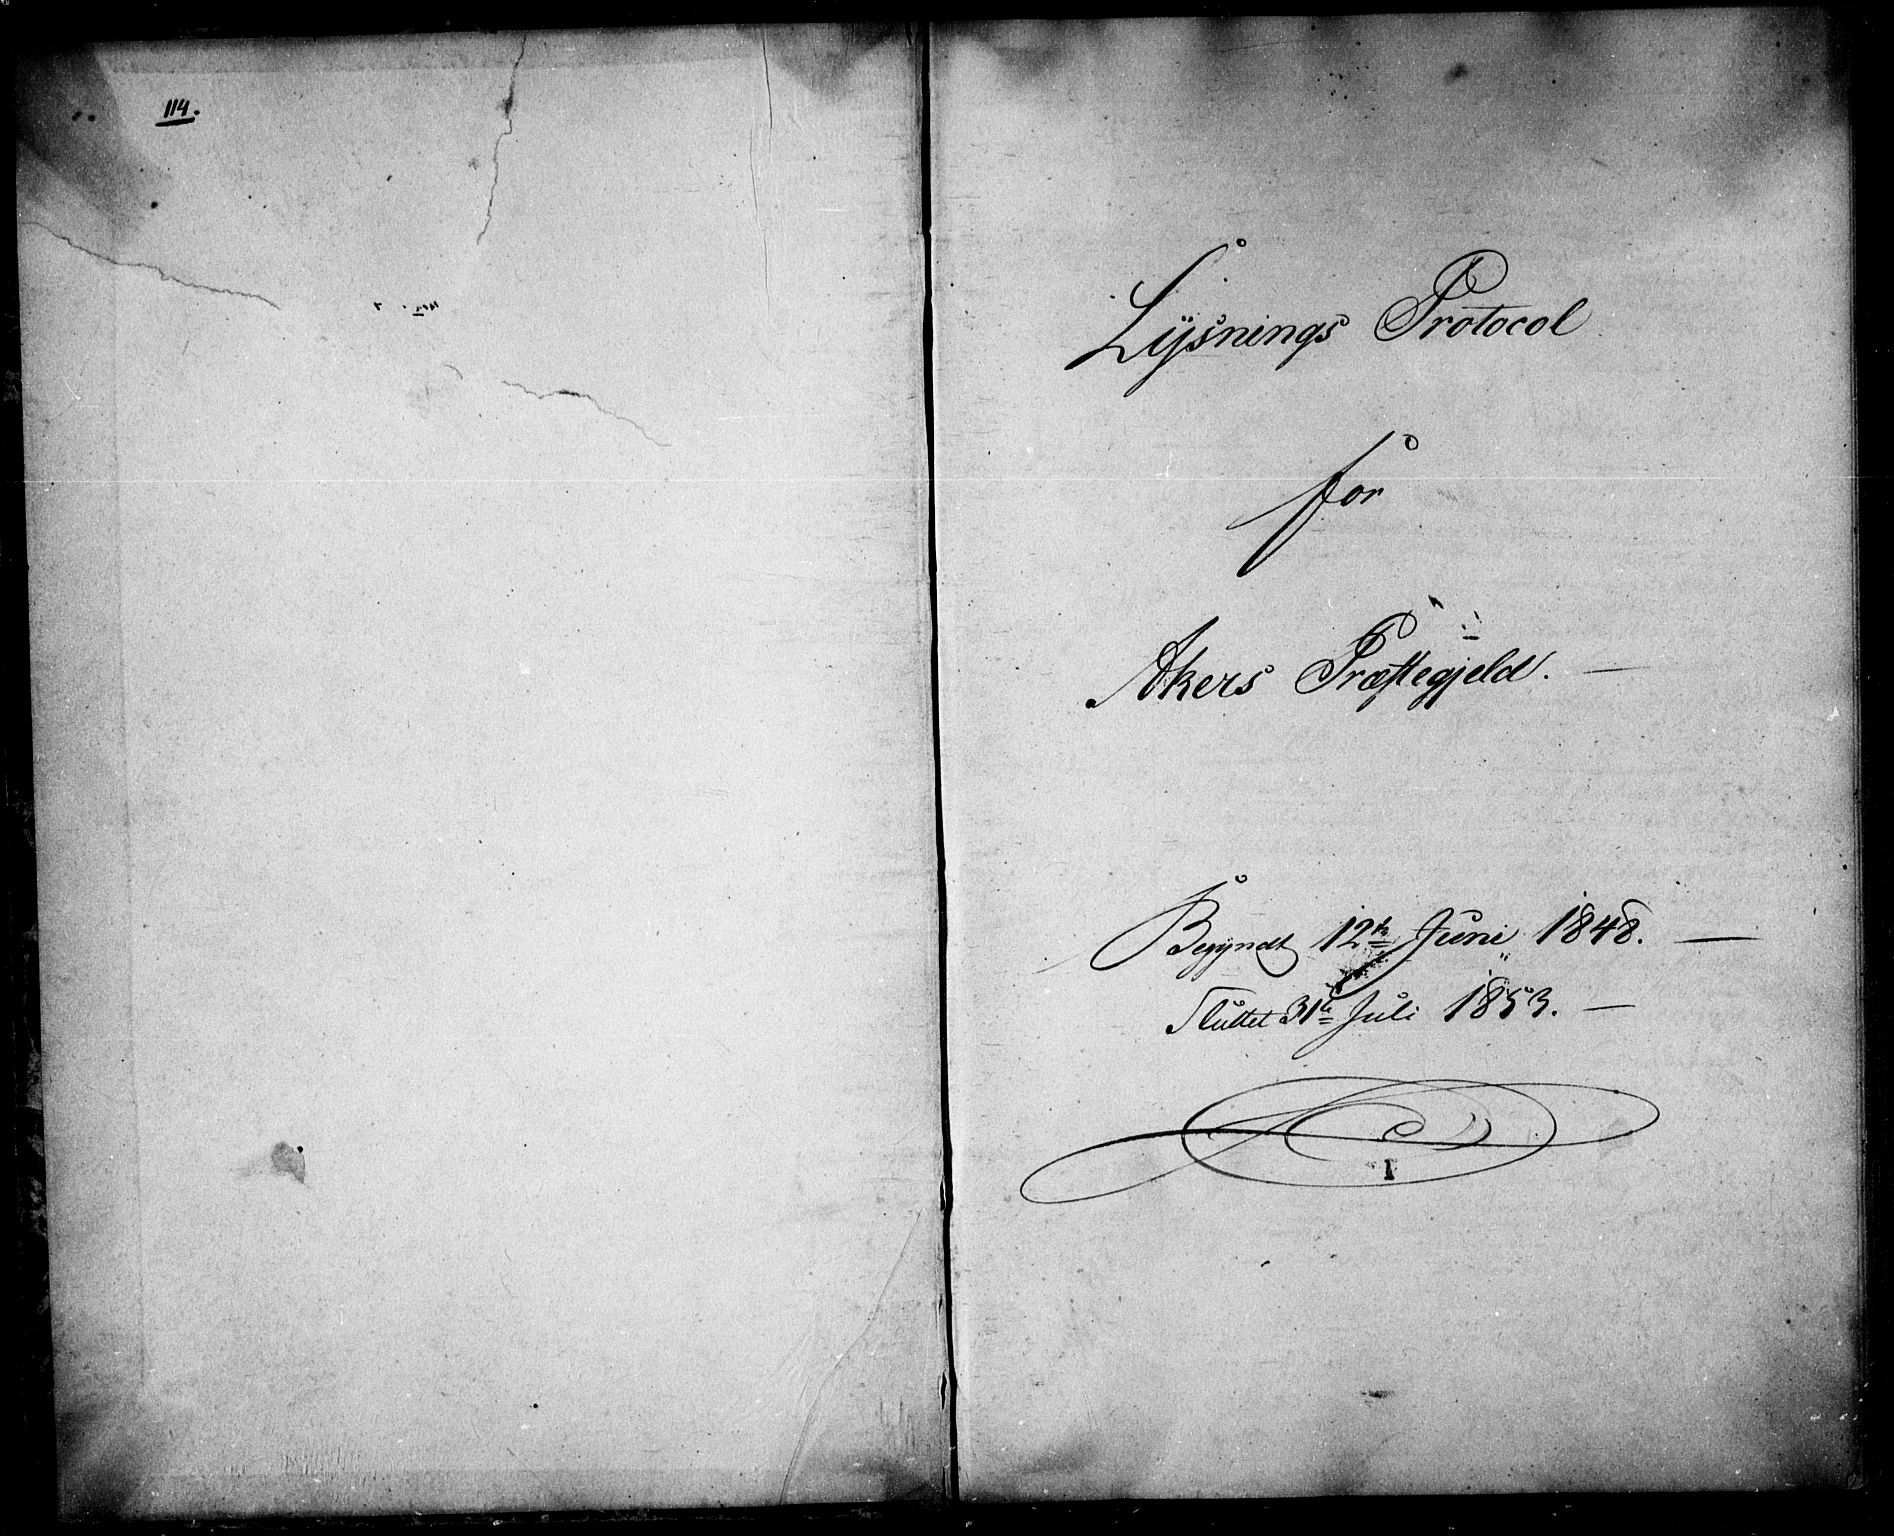 114.
Lysnings Protocol
for
Akers Præstegjeld. —
Begyndt 12te Juni 1848. —
Sluttet 31te Juli 1853. —
I